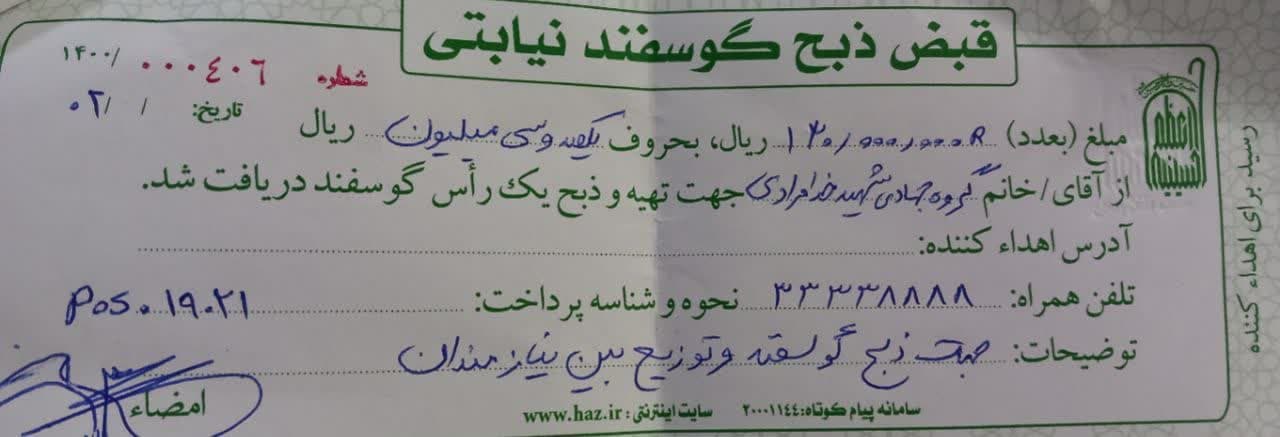 قبض ذبح گوسفند نیابتی
شماره ۰۰۰۴۰۶
۱۴۰۰/
تاریخ: / /۰۲
مبلغ (بعدد) ۱۳۰/۰۰۰/۰۰۰R ریال، بحروف یکصد و سی میلیون ریال
از آقای/خانم گروه جهادی شهید خدامرادی جهت تهیه و ذبح یک رأس گوسفند دریافت شد.
آدرس اهداء کننده:
تلفن همراه: ۳۳۳۳۸۸۸۸ نحوه و شناسه پرداخت: Pos. ۱۹۰۲۱
توضیحات: جهت ذبح گوسفند و توزیع بین نیازمندان
امضاء
سامانه پیام کوتاه: ۲۰۰۰۱۱۴۴ سایت اینترنتی: www.haz.ir
حسینیه اعظم
رسید برای اهداء کننده